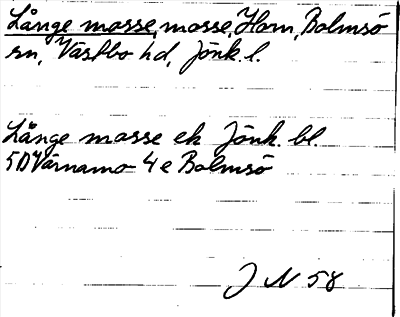 Långe mosse, mosse, Horn, Bolmsö
sn, Västbo hd, Jönk. l.
Långe mosse ek Jönk. bl.
5D Värnamo 4 e Bolmsö
J N 58